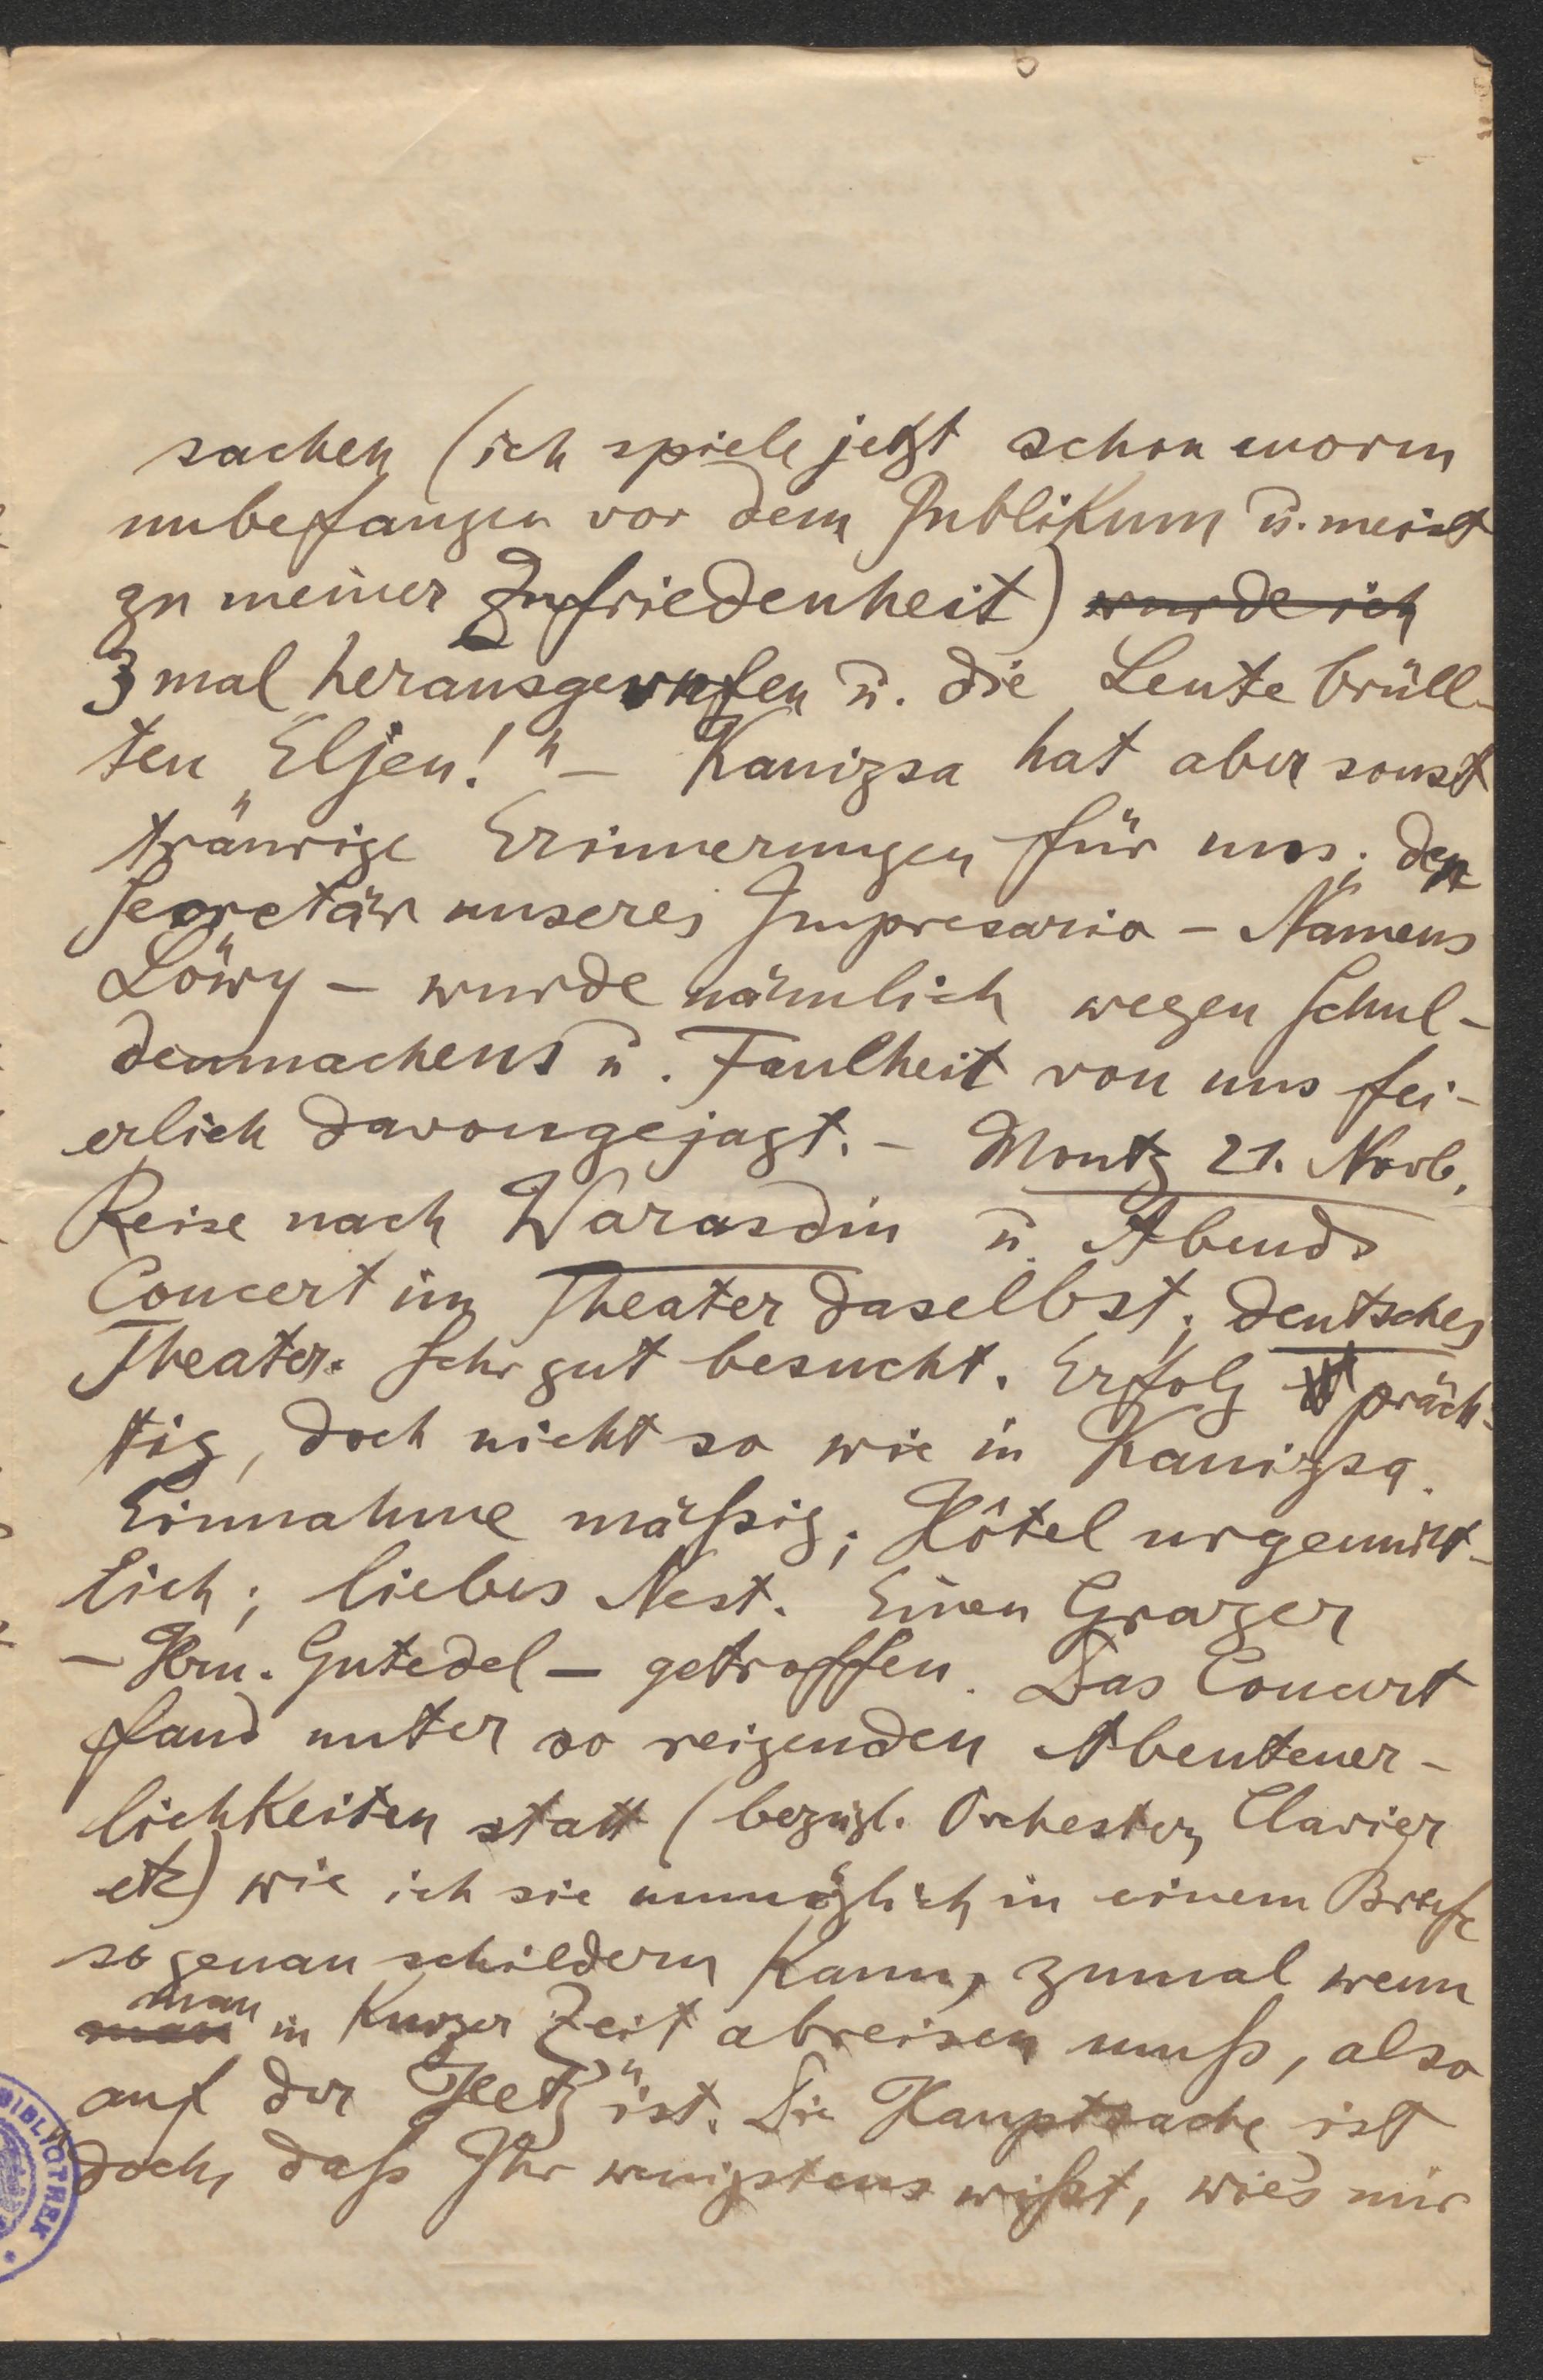 sachen (ich spiele jetzt schon enorm
unbefangen vor dem Publikum u. meist
zu meiner Zufriedenheit) wurde ich
3 mal herausgerufen u. die Leute brüll-
ten „Eljen!" – Kanizsa hat aber sonst
traurige Erinnerungen für uns; der
Secretär unseres Impresario – Namens
Löwy – wurde nämlich wegen Schul-
denmachens u. Faulheit von uns fei-
erlich davongejagt. – Montg 21. Novb.
Reise nach Warasdin u. Abends
Concert im Theater daselbst; deutsches
Theater. Sehr gut besucht. Erfolg präch-
tig, doch nicht so wie in Kanizsa.
Einnahme mäßig; Hôtel urgemüt-
lich; liebes Nest. Einen Grazer
– Hrn. Gutedel – getroffen. Das Concert
fand unter so reizenden Abenteuer-
lichkeiten statt (bezügl. Orchester, Clavier
etc) wie ich sie unmöglich in einem Briefe
so genau schildern kann, zumal wenn
man in kurzer Zeit abreisen muß, also
auf der „Heetz" ist. Die Hauptsache ist
doch, daß Ihr wenigstens wißt, wie's mir
BIBLIOTHEK